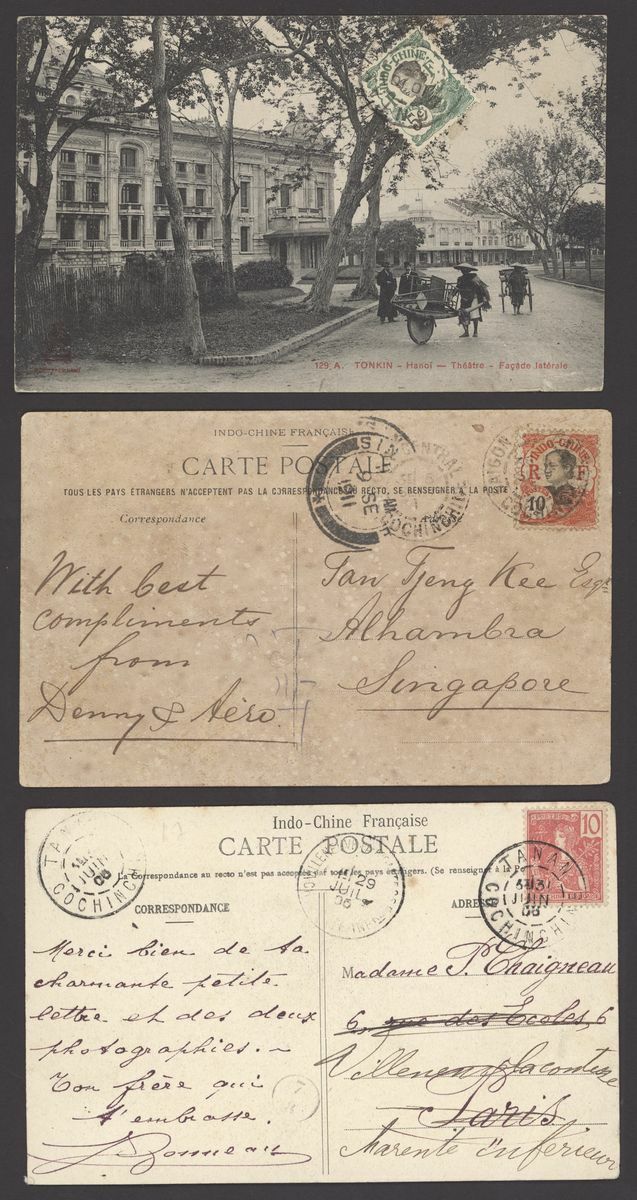 INDO-CHINE
129 A. TONKIN - Hanoï - Théâtre - Façade latérale
INDO-CHINE FRANÇAISE
CARTE POSTALE
TOUS LES PAYS ÉTRANGERS N'ACCEPTENT PAS LA CORRESPONDANCE AU RECTO, SE RENSEIGNER A LA POSTE
Correspondance
SIN
SE
1911
COCHINCHINE
INDO-CHINE
R F
10
With best
compliments
from
Denny & Aéro.
Tan Tjeng Kee Esqr
Alhambra
Singapore
Indo-Chine Française
CARTE POSTALE
La Correspondance au recto n'est pas acceptée par tous les pays étrangers. (Se renseigner à la
CORRESPONDANCE
ADRESSE
TANAN
JUIN
06
COCHINCH
29
JUIL
06
10
TANAN
JUIN
06
COCHINCHINE
Merci bien de ta
charmante petite
lettre et des deux
photographies. -
Ton frère qui
t'embrasse.
J Bonneau
7
Madame P. Chaigneau
6, rue des Ecoles, 6
Villeneuve la comtesse
Paris
Charente inférieure